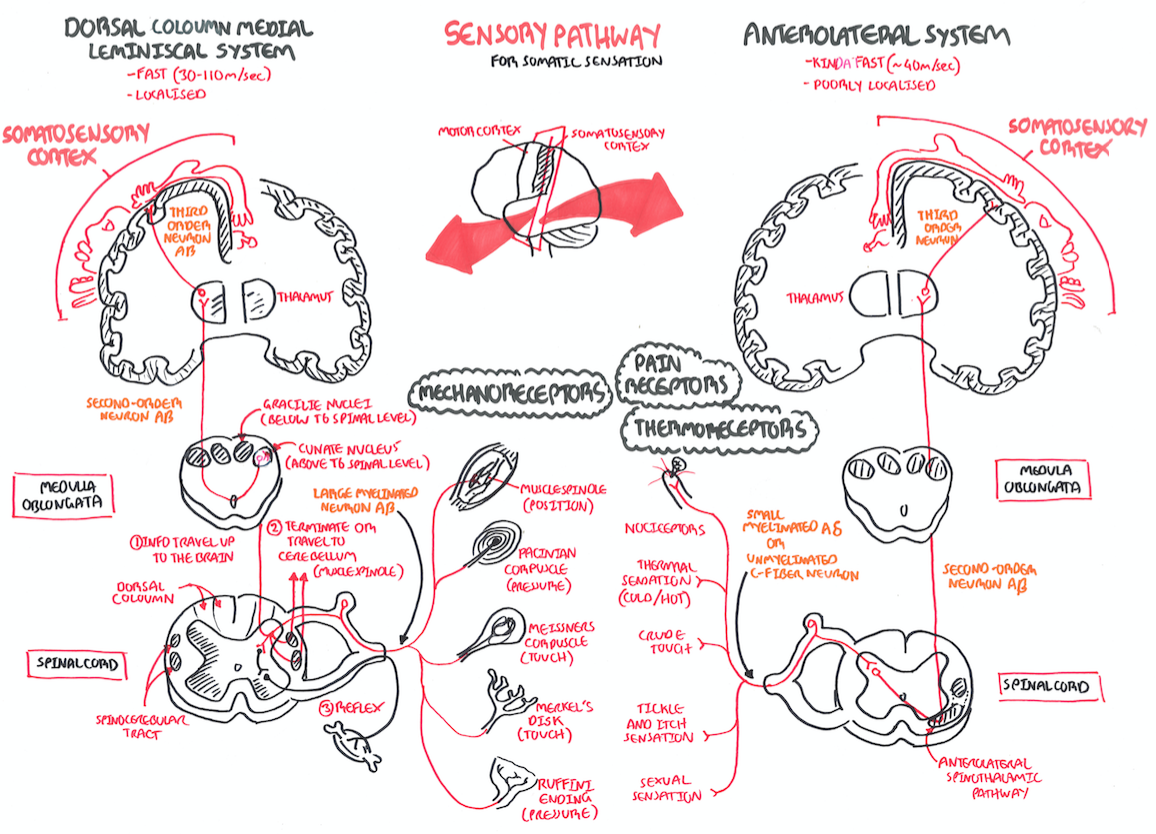 DORSAL COLOUMN MEDIAL
LEMINISCAL SYSTEM
-FAST (30-110m/sec)
-LOCALISED
SENSORY PATHWAY
FOR SOMATIC SENSATION
ANTEROLATERAL SYSTEM
-KINDA FAST (~40m/sec)
-POORLY LOCALISED
SOMATOSENSORY
CORTEX
MOTOR CORTEX
SOMATOSENSORY
CORTEX
SOMATOSENSORY
CORTEX
THIRD
ORDER
NEURON
AB
THALAMUS
THIRD
ORDER
NEURON
THALAMUS
SECOND-ORDER
NEURON AB
MECHANORECEPTORS
PAIN
RECEPTORS
THERMORECEPTORS
GRACILIE NUCLEI
(BELOW T6 SPINAL LEVEL)
CUNATE NUCLEUS
(ABOVE T6 SPINAL LEVEL)
MEDULLA
OBLONGATA
LARGE MYELINATED
NEURON AB
① INFO TRAVEL UP
TO THE BRAIN
② TERMINATE OR
TRAVEL TO
CEREBELLUM
(MUSCLE SPINDLE)
DORSAL
COLOUMN
SPINAL CORD
SPINOCEREBULAR
TRACT
③ REFLEX
MUSCLE SPINDLE
(POSITION)
PACINIAN
CORPUSCLE
(PRESSURE)
MEISSNERS
CORPUSCLE
(TOUCH)
MERKEL'S
DISK
(TOUCH)
RUFFINI
ENDING
(PRESSURE)
NOCICEPTORS
THERMAL
SENSATION
(COLD/HOT)
CRUDE
TOUCH
TICKLE
AND ITCH
SENSATION
SEXUAL
SENSATION
SMALL
MYELINATED Aδ
OR
UNMYELINATED
C-FIBER NEURON
MEDULA
OBLONGATA
SECOND-ORDER
NEURON AB
SPINAL CORD
ANTEROLATERAL
SPINOTHALAMIC
PATHWAY